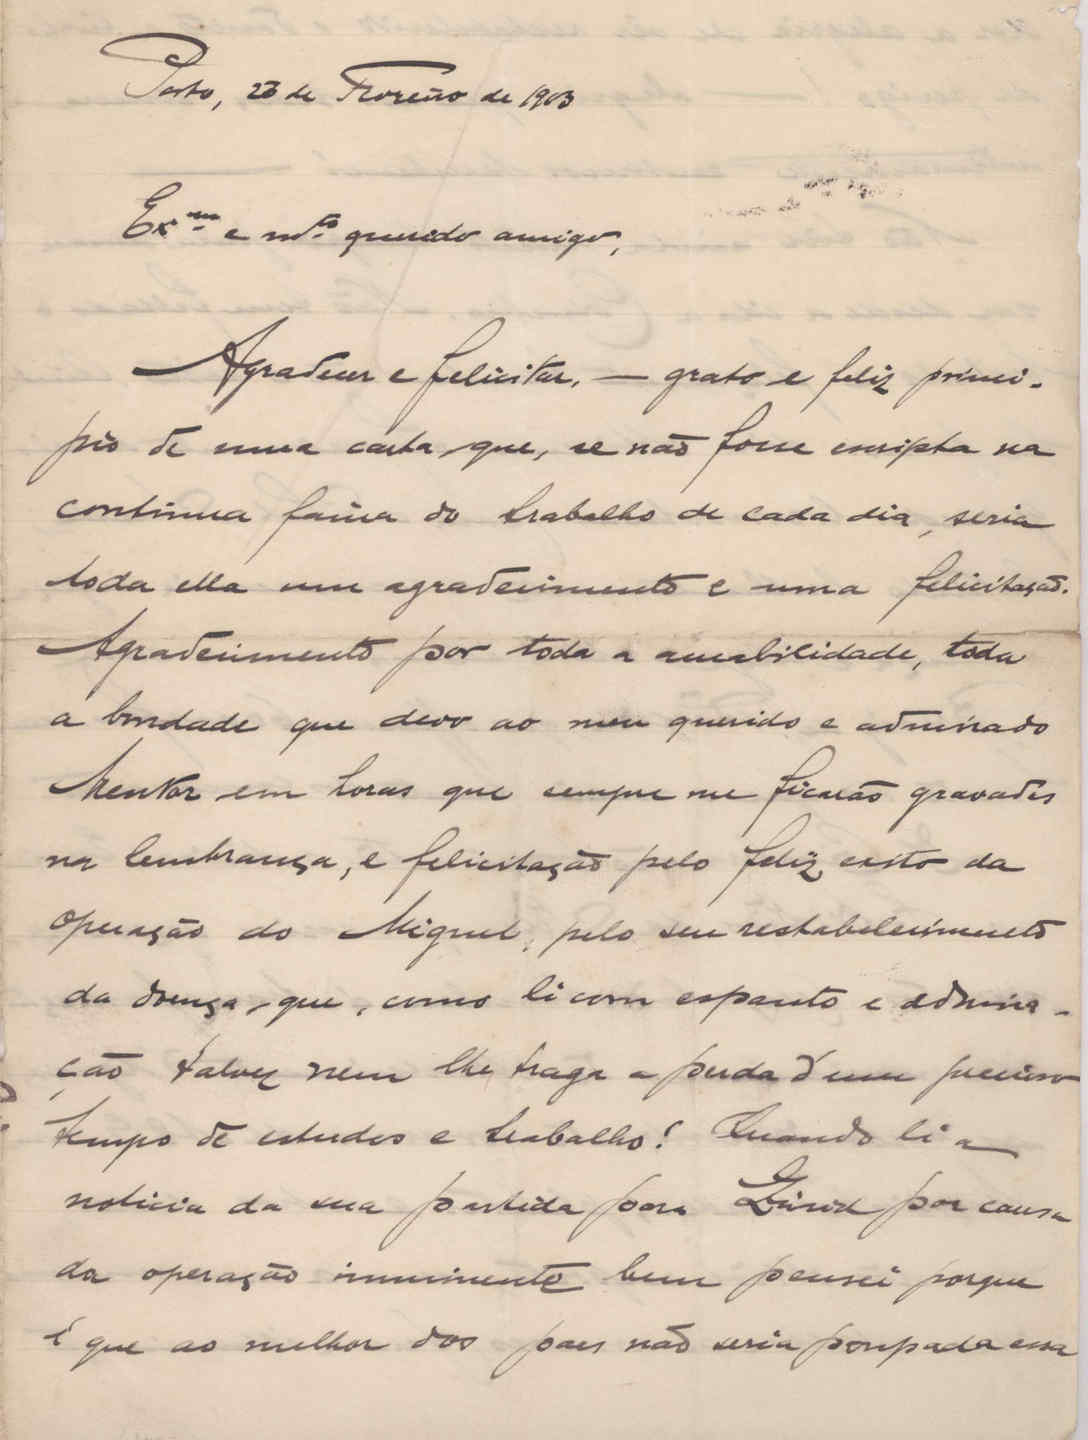 Porto, 23 de Fevereiro de 1903
Ex.mo e m.to querido amigo,
Agradecer e felicitar, — grato e feliz princi-
pio de uma carta, que, se não fosse escripta na
continua faina do trabalho de cada dia, seria
toda ella um agradecimento e uma felicitação.
Agradecimento por toda a amabilidade, toda
a bondade que devo ao meu querido e admirado
Mentor em horas que sempre me ficarão gravadas
na lembrança, e felicitação pelo feliz exito da
operação do Miguel, pelo seu restabelecimento
da doença, que, como li com espanto e admira-
ção talvez nem lhe traga a perda d'um precioso
tempo de estudos e trabalho! Quando li a
noticia da sua partida para Zürich por causa
da operação imminente bem pensei porque
é que ao melhor dos paes não seria poupada essa